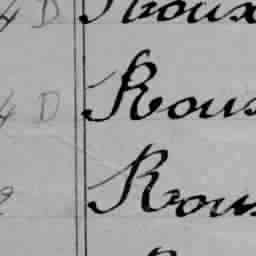 4 D Roux
4 D Rous
Rous